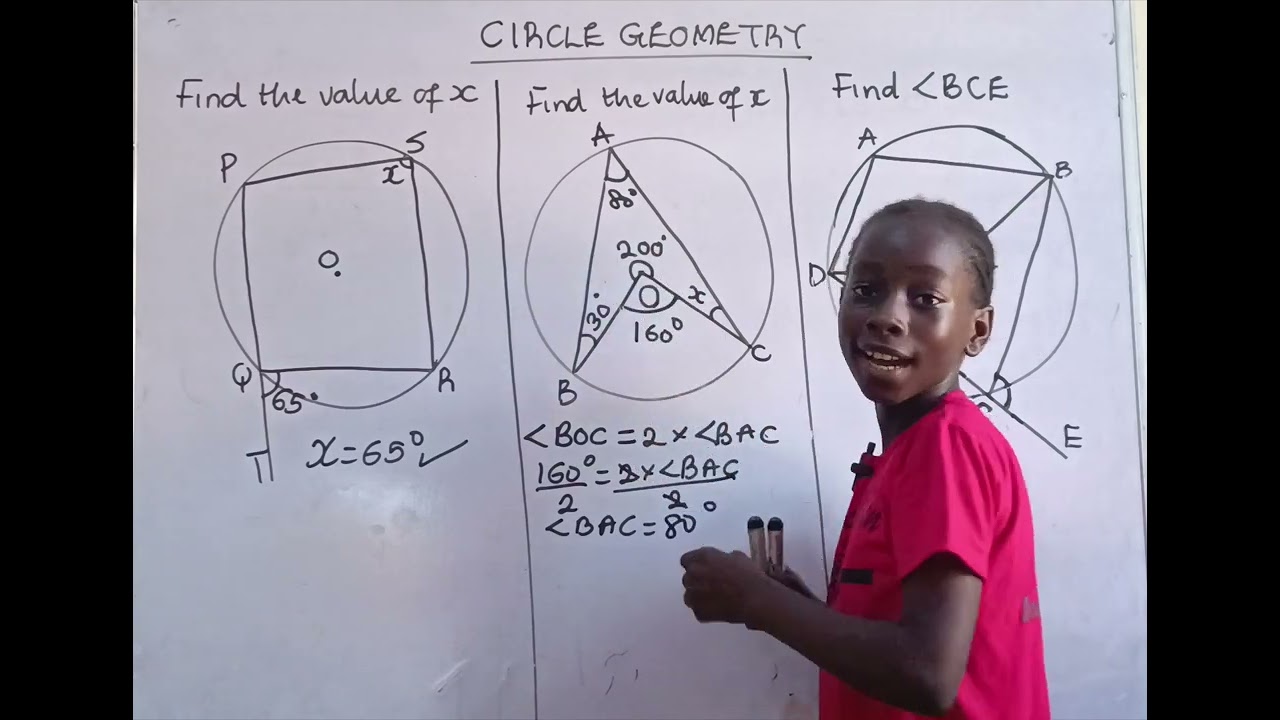 CIRCLE GEOMETRY
Find the value of x
P
S
x
O
Q
R
65°
T
x=65°✓
Find the value of x
A
80°
200°
30°
O
x
160°
B
C
<BOC = 2 × <BAC
160° = 2 × <BAC
2
2
<BAC = 80°
Find <BCE
A
B
D
E